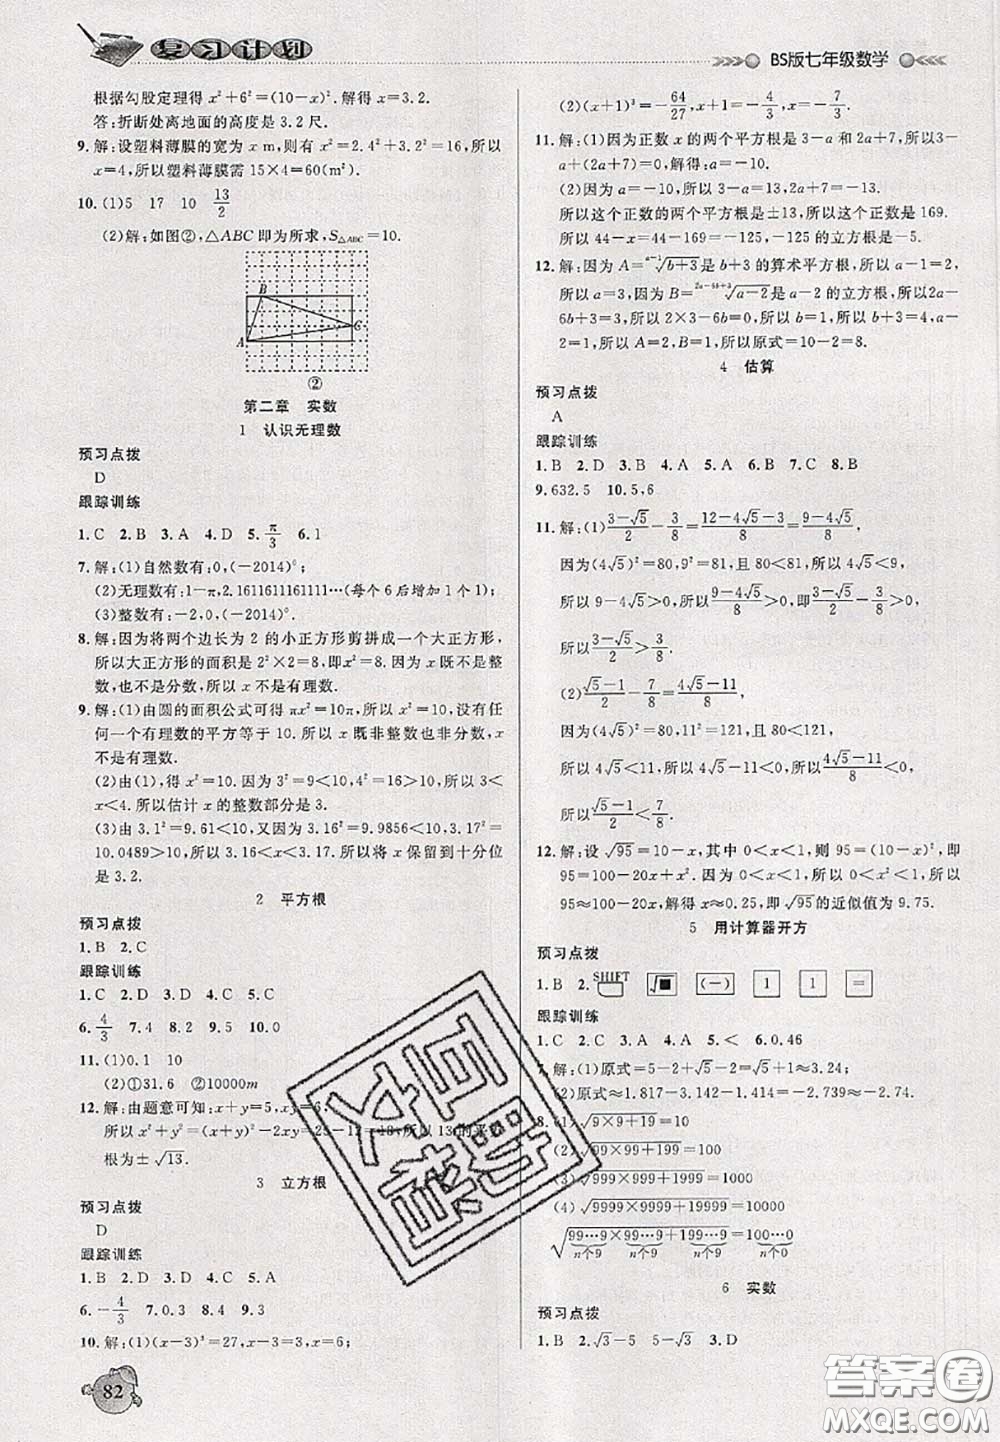 复习计划
BS版七年级数学
根据勾股定理得 x²+6²=(10-x)². 解得 x=3.2.
答:折断处离地面的高度是 3.2 尺.
9. 解:设塑料薄膜的宽为 x m,则有 x²=2.4²+3.2²=16,所以
x=4,所以塑料薄膜需 15×4=60(m²).
10. (1)5 17 10 13/2
(2)解:如图②,△ABC 即为所求,S△ABC=10.
A
B
C
②
第二章 实数
1 认识无理数
预习点拨
D
跟踪训练
1. C 2. B 3. A 4. D 5. π/3 6. 1
7. 解:(1)自然数有:0,(-2014)⁰;
(2)无理数有:1-π,2.1611611161111…(每个 6 后增加 1 个 1)
(3)整数有:-2,0,(-2014)⁰.
8. 解:因为将两个边长为 2 的小正方形剪拼成一个大正方形,
所以大正方形的面积是 2²×2=8,即x²=8. 因为 x 既不是整
数,也不是分数,所以 x 不是有理数.
9. 解:(1)由圆的面积公式可得 πx²=10π,所以 x²=10,没有任
何一个有理数的平方等于 10. 所以 x 既非整数也非分数,x
不是有理数.
(2)由(1),得 x²=10. 因为 3²=9<10,4²=16>10,所以 3<
x<4. 所以估计 x 的整数部分是 3.
(3)由 3.1²=9.61<10,又因为 3.16²=9.9856<10,3.17²=
10.0489>10,所以 3.16<x<3.17. 所以将 x 保留到十分位
是 3.2.
2 平方根
预习点拨
1. B 2. C
跟踪训练
1. C 2. D 3. D 4. C 5. C
6. 4/3 7. 4 8. 2 9. 5 10. 0
11. (1)0.1 10
(2)①31.6 ②10000m
12. 解:由题意可知:x+y=5,xy=6.
所以 x²+y²=(x+y)²-2xy=25-12=13,所以 13 的平方
根为± √13.
3 立方根
预习点拨
D
跟踪训练
1. B 2. D 3. D 4. C 5. A
6. -4/3 7. 0.3 8. 9 9. 3
10. 解:(1)(x-3)³=27,x-3=3,x=6;
82
(2)(x+1)³=-64/27,x+1=-4/3,x=-7/3.
11. 解:(1)因为正数 x 的两个平方根是 3-a 和 2a+7,所以3-
a+(2a+7)=0,解得:a=-10.
(2)因为 a=-10,所以 3-a=13,2a+7=-13.
所以这个正数的两个平方根是±13,所以这个正数是 169.
所以 44-x=44-169=-125,-125 的立方根是-5.
12. 解:因为 A=ᵃ⁻¹√(b+3)是 b+3 的算术平方根,所以 a-1=2,
所以 a=3,因为 B=²ᵃ⁻⁶ᵇ⁺³√(a-2)是 a-2 的立方根,所以2a-
6b+3=3,所以 2×3-6b=0,所以 b=1,所以 b+3=4,a-
2=1,所以 A=2,B=1,所以原式=10-2=8.
4 估算
预习点拨
A
跟踪训练
1. B 2. D 3. B 4. A 5. A 6. B 7. C 8. B
9. 632.5 10. 5,6
11. 解:(1)(3-√5)/2-3/8=(12-4√5-3)/8=(9-4√5)/8,
因为(4√5)²=80,9²=81,且 80<81,所以 4√5<9,
所以 9-4√5>0,所以(9-4√5)/8>0,
所以(3-√5)/2>3/8.
(2)(√5-1)/2-7/8=(4√5-11)/8,
因为(4√5)²=80,11²=121,且 80<121,
所以 4√5<11,所以 4√5-11<0,所以(4√5-11)/8<0,
所以(√5-1)/2<7/8.
12. 解:设 √95=10-x,其中 0<x<1,则 95=(10-x)²,即
95=100-20x+x². 因为 0<x<1,所以 0<x²<1,所以
95≈100-20x,解得 x≈0.25,即 √95的近似值为 9.75.
5 用计算器开方
预习点拨
1. B 2. SHIFT √■ (-) 1 1 =
跟踪训练
1. C 2. C 3. A 4. B 5. < 6. 0.46
7. 解:(1)原式=√5-2+5-2=√5+1≈3.236.
(2)原式≈1.817-3.142-1.414=-2.739.
8. (1)√(9×9+19)=10
(2)√(99×99+199)=100
(3)√(999×999+1999)=1000
(4)√(9999×9999+19999)=10000
√(99…9×99…9+199…9)=100…0
n个9 n个9 n个9 n个0
6 实数
预习点拨
1. B 2. √3-5 5-√3 3. D
互助文档
答案圈
MXQE.COM